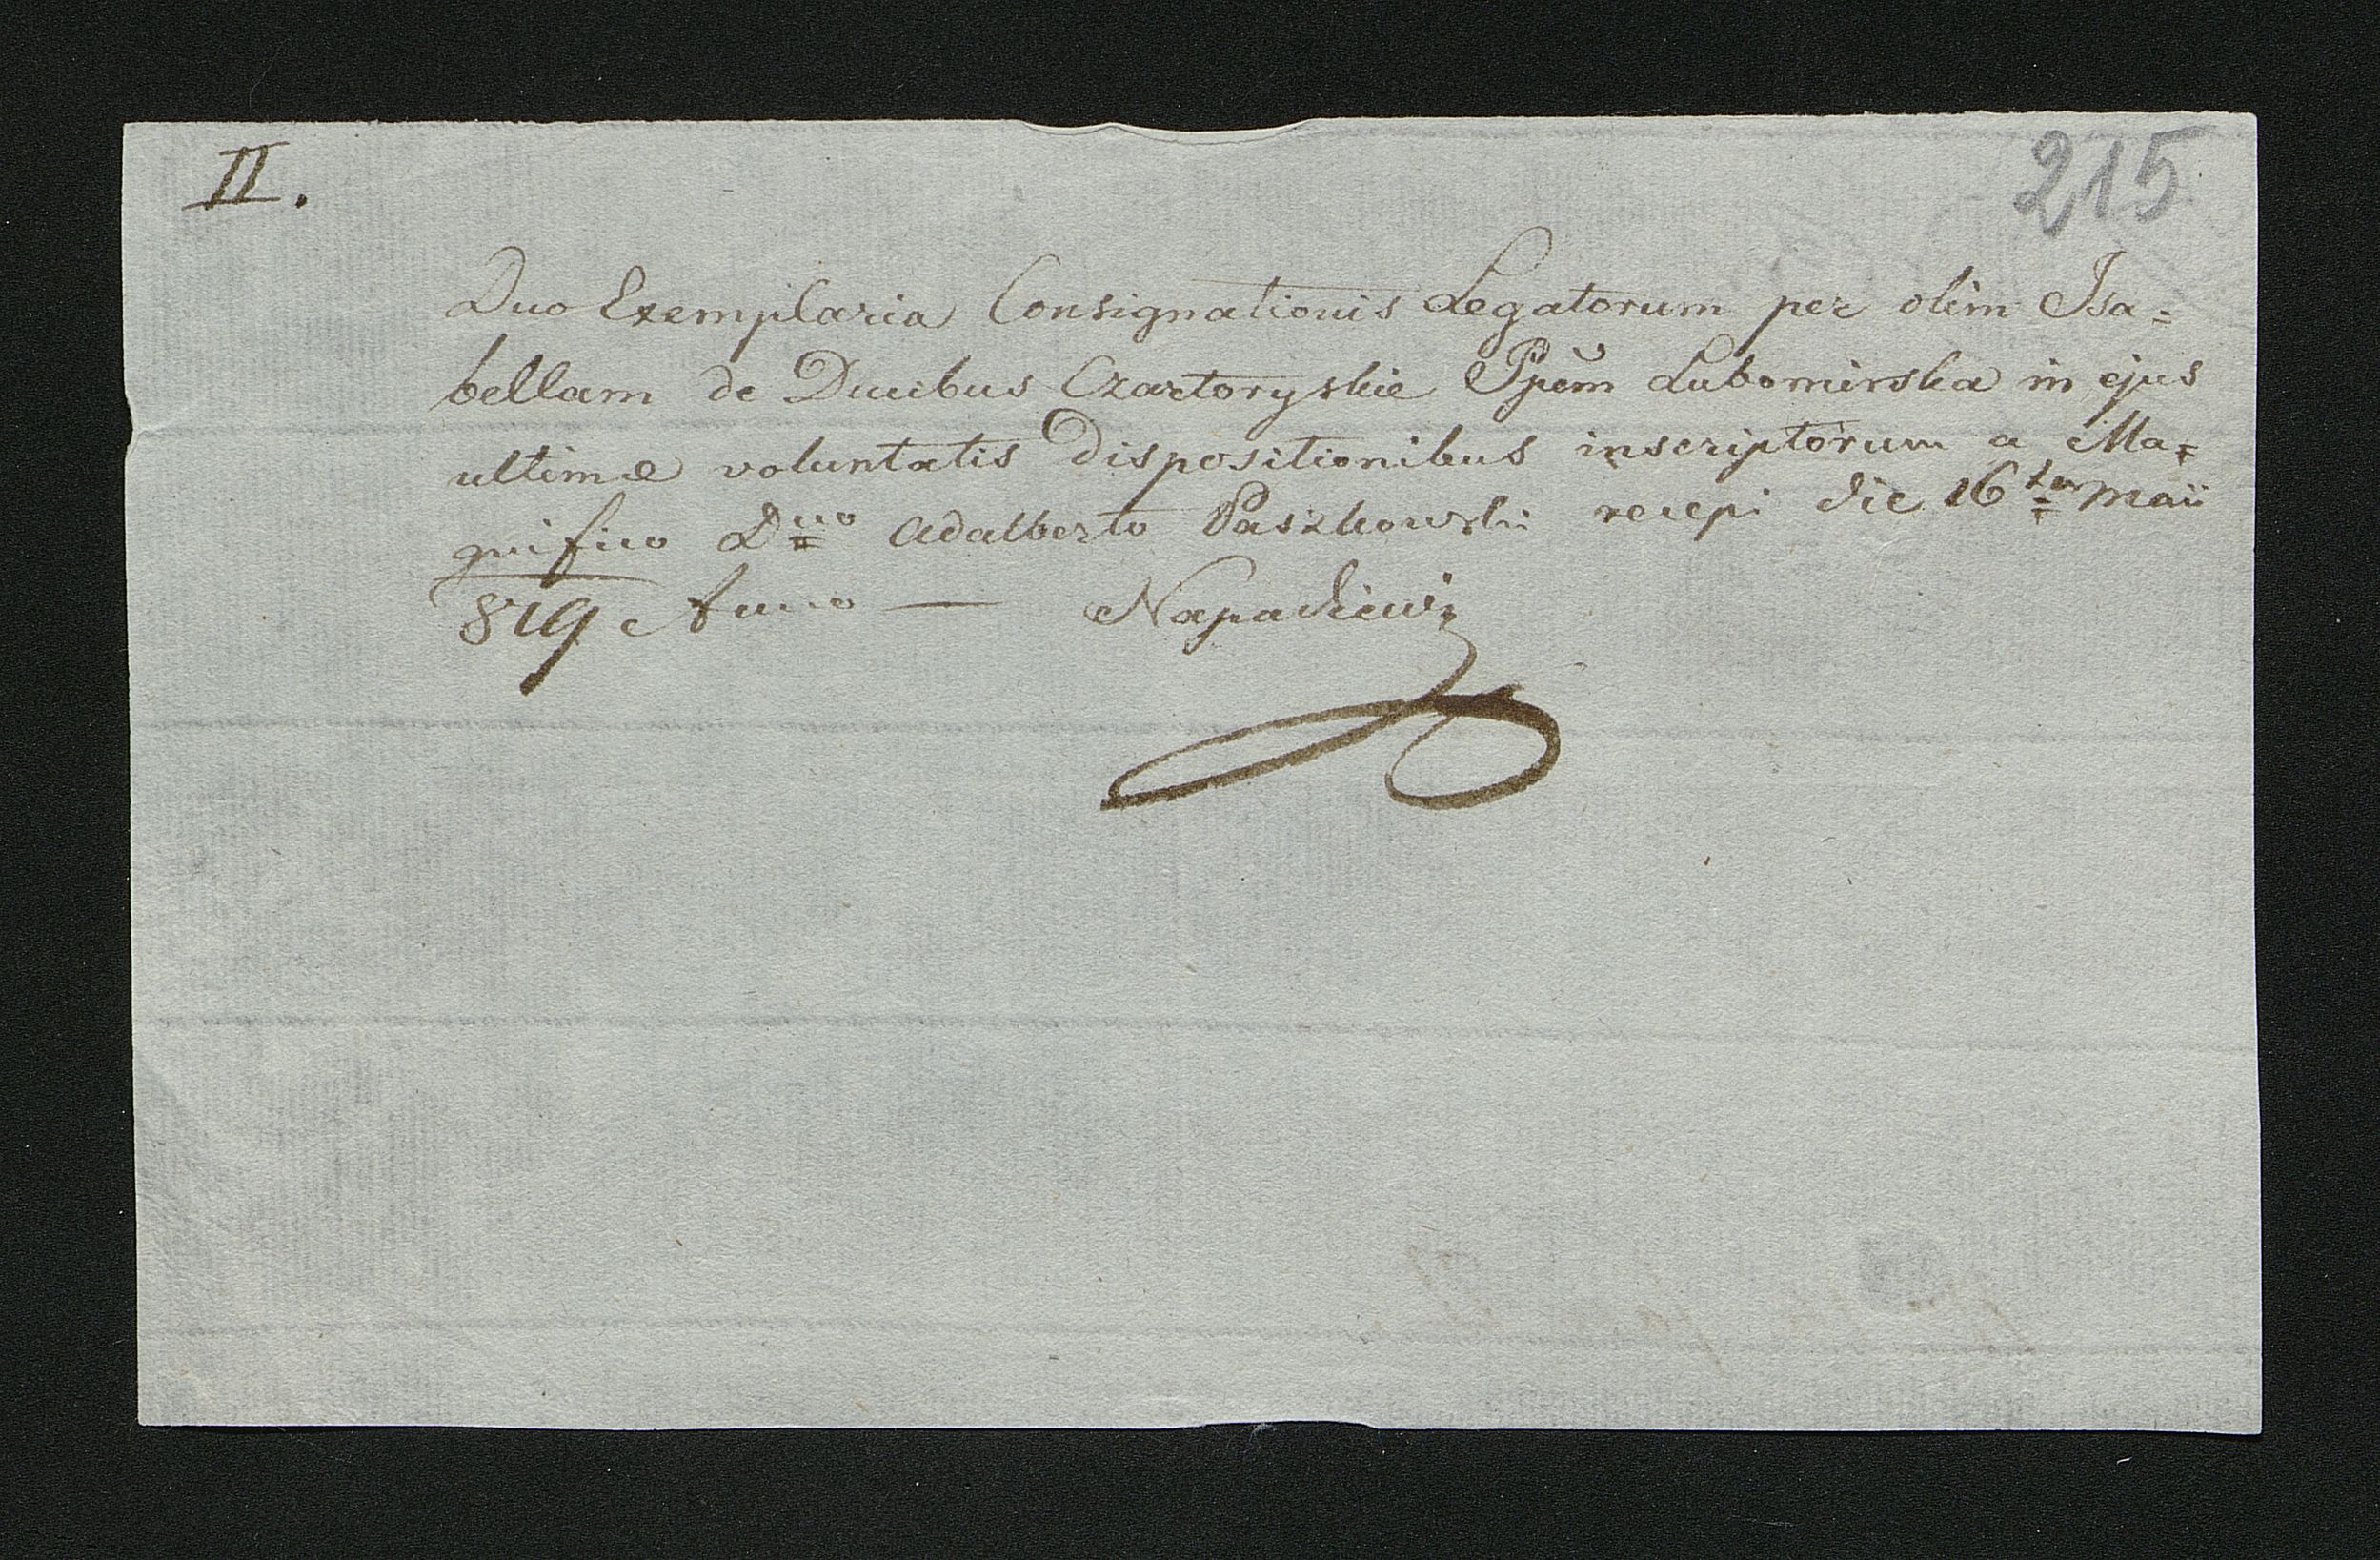 II.
215
Duo Exemplaria Consignationis Legatorum per olim Isa=
bellam de Ducibus Czartoryskie Ppem Lubomirska in ejus
ultimæ voluntatis dispositionibus inscriptorum a Ma=
gnifico Dno Adalberto Paszkowski recepi die 16ta maii
819 Anno —